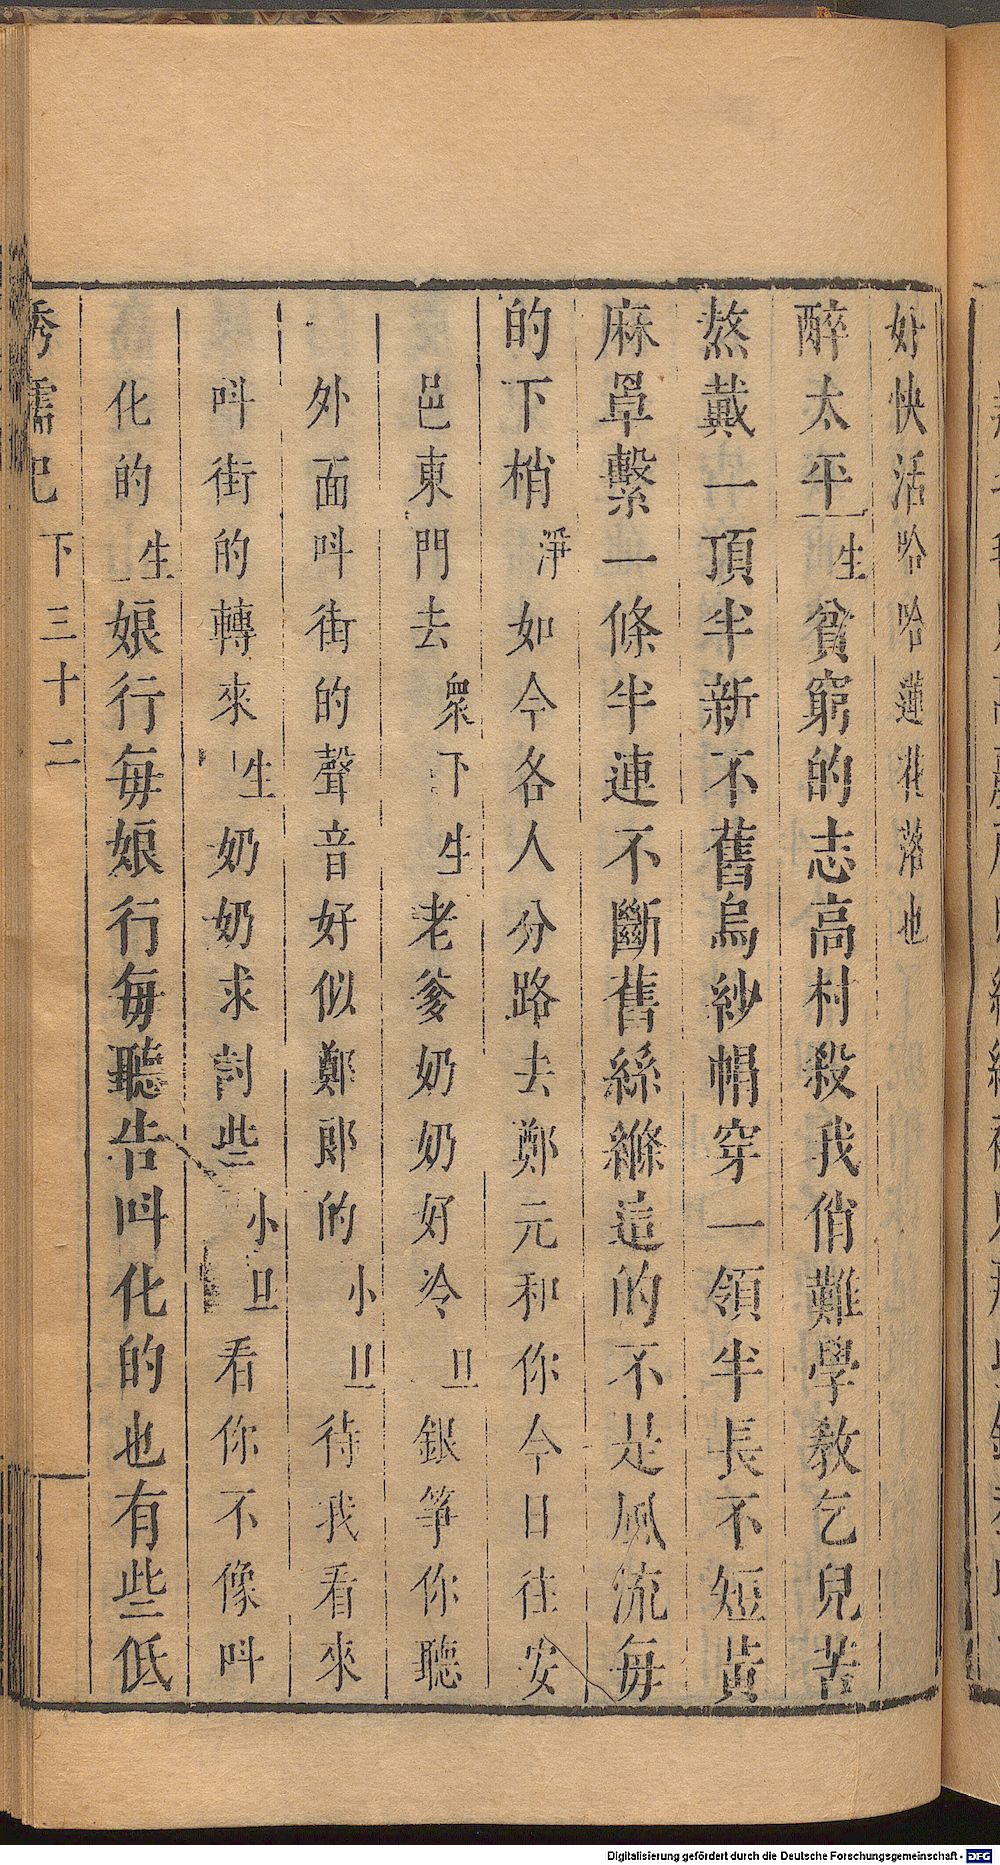 好快活哈哈蓮花落也
醉太平生貧窮的志高村殺我俏難學教乞兒苦
熬戴一頂半新不舊烏紗帽穿一領半長不短黃
麻罩繫一條半連不斷舊絲縧這的不是風流每
的下梢淨如今各人分路去鄭元和你今日往安
邑東門去衆下生老爹奶奶好冷旦銀箏你聽
外面叫街的聲音好似鄭郎的小旦待我看來
叫街的轉來生奶奶求討些小旦看你不像叫
化的生娘行每娘行每聽告叫化的也有些低
秀襦記下三十二
Digitalisierung gefördert durch die Deutsche Forschungsgemeinschaft - DFG